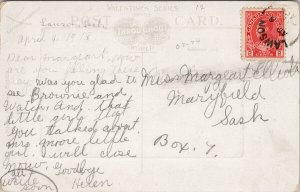 VALENTINE'S SERIES
12
POST CARD.
April 4. 1918
Dear Margeart. How
are you
Was you glad to
see Brownie and
And that
little girl that
You talked about
Mrs moore little
girl. I will close
now.
Goodbye
write soon
Helen
Miss Margeart Elliott
Maryfield
Sask
Box. 7.